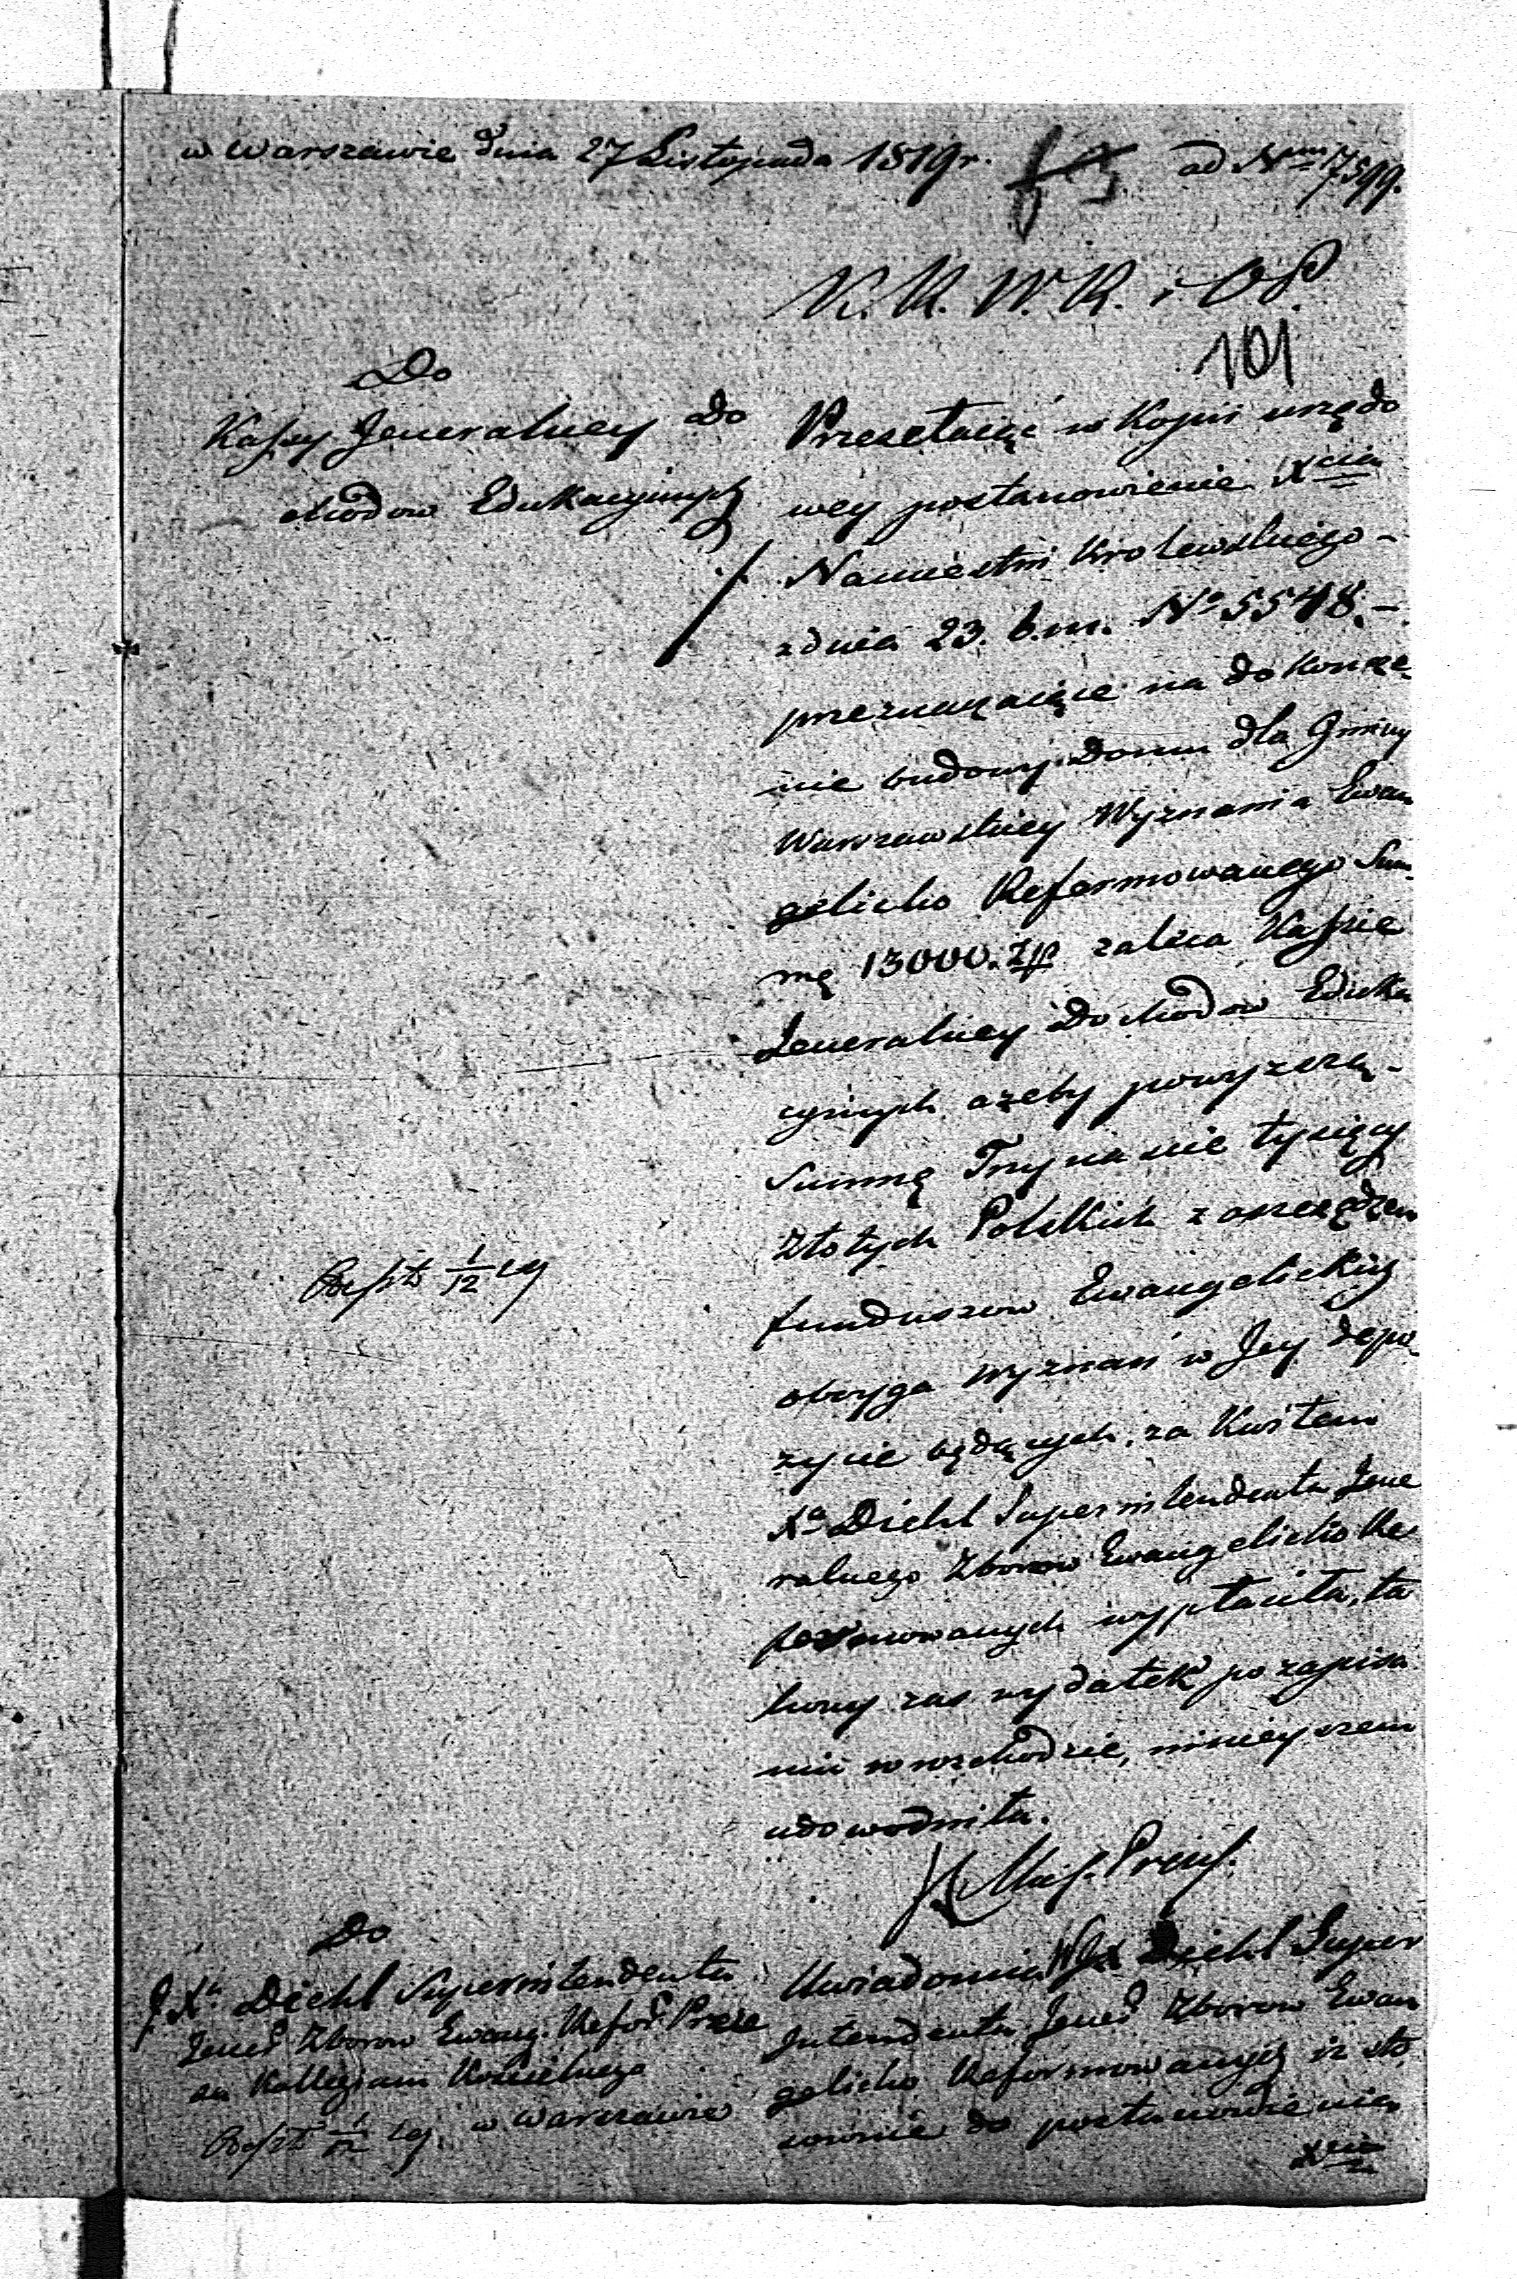 w Warszawie dnia 27 Listopada 1819 r.
ad Nrum 7599.
K. R. W. R. i O. P.
101
Do
Kassy Jeneralney do
chodow Edukacyinych
Przesełaiąc w Kopii urzędo
wey postanowienie Xcia
Namiestni Krolewskiego -
z dnia 23. b. m. No 5548. -
przeznaczaiące na dokoncze
nie budowy Domu dla Gminy
Warszawskiey Wyznania Ewan
gelicko Reformowanego Sum
mę 13000. Złp zaleca Kassie
Jeneralney Dochodow Eduka
cyinych ażeby powyższą -
Summę Trzynascie tysięcy
Złotych Polskich z oszczędzen
funduszow Ewangelickich
oboyga wyznań w Jey depo
zycie będących, za Kwitem
Xa Diehl Superintendenta Jene
ralnego Zborow Ewangelicko Re
formowanych wypłaciła, ta
kowy zas wydatek po zapisa
niu w rozchodzie, ninieyszem
udowodniła.
Exp. 1/12 eg
M. Prezyd.
Do
J Xa Diehl Superintendenta
Jener Zborow Ewang. Refor. Preze
sa Kollegium Koscielnego
w Warszawie
Exp. 1/12 eg
Uwiadomia WJX Diehl Super
Intendenta Jener Zborow Ewan
gelicko Reformowanych iż sto
sownie do postanowienia
Xcia